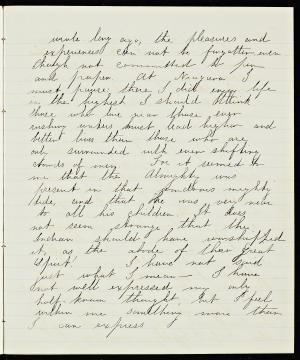 wrote long ago, the pleasures and
experiences can not be forgotten even
though not committed to pen
and paper. At Niagara I
must pause; there I did enjoy life
in the highest I should think
those who live near those ever
rushing waters must lead higher and
better lives than those who are
only surrounded with ever shifting
clouds of men. For it seemed to
me that the Almighty was
present in that wondrous mighty
tide, and that He was very near
to all his children. It does
not seem strange that the
Indian should have worshipped
it, as the abode of their great
Spirit. I have not said
just what I mean — I have
not well expressed my only
half known thought, but I feel
within me something more than
I can express